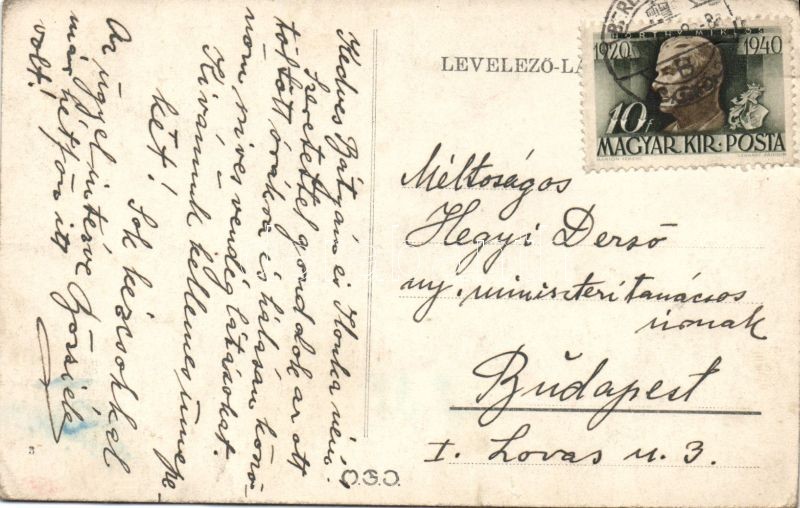 Kedves Bátyám és Ilonka néni!
Szeretettel gondolok az ott
töltött órákra és hálásan köszö-
nöm szives vendéglátásukat.
Kivánunk kellemes ünnepe-
ket!
Sok kézcsókkal
Az ügyelintézve
már hétfőn itt
volt!
LEVELEZŐ-LA
HORTHY MIKLÓS
1920 1940
10f
MAGYAR KIR. POSTA
Méltoságos
Hegyi Dersó
ny. miniszteri tanácsos
úrnak
Budapest
I. Lovas u. 3.
O.S.O.